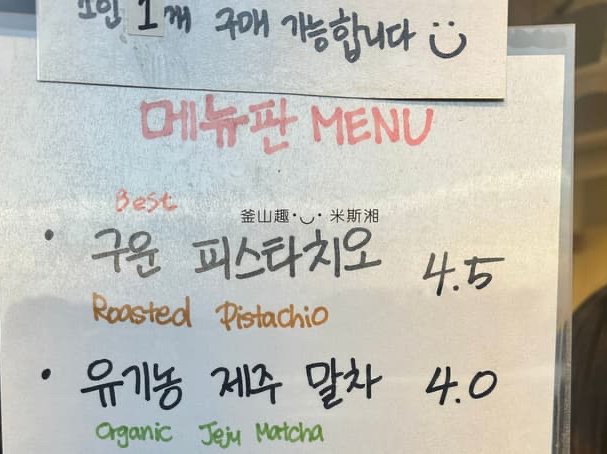 1인 1개 구매 가능합니다
메뉴판 MENU
Best
釜山趣·◡· 米斯湘
구운 피스타치오 4.5
Roasted Pistachio
유기농 제주 말차 4.0
Organic Jeju Matcha